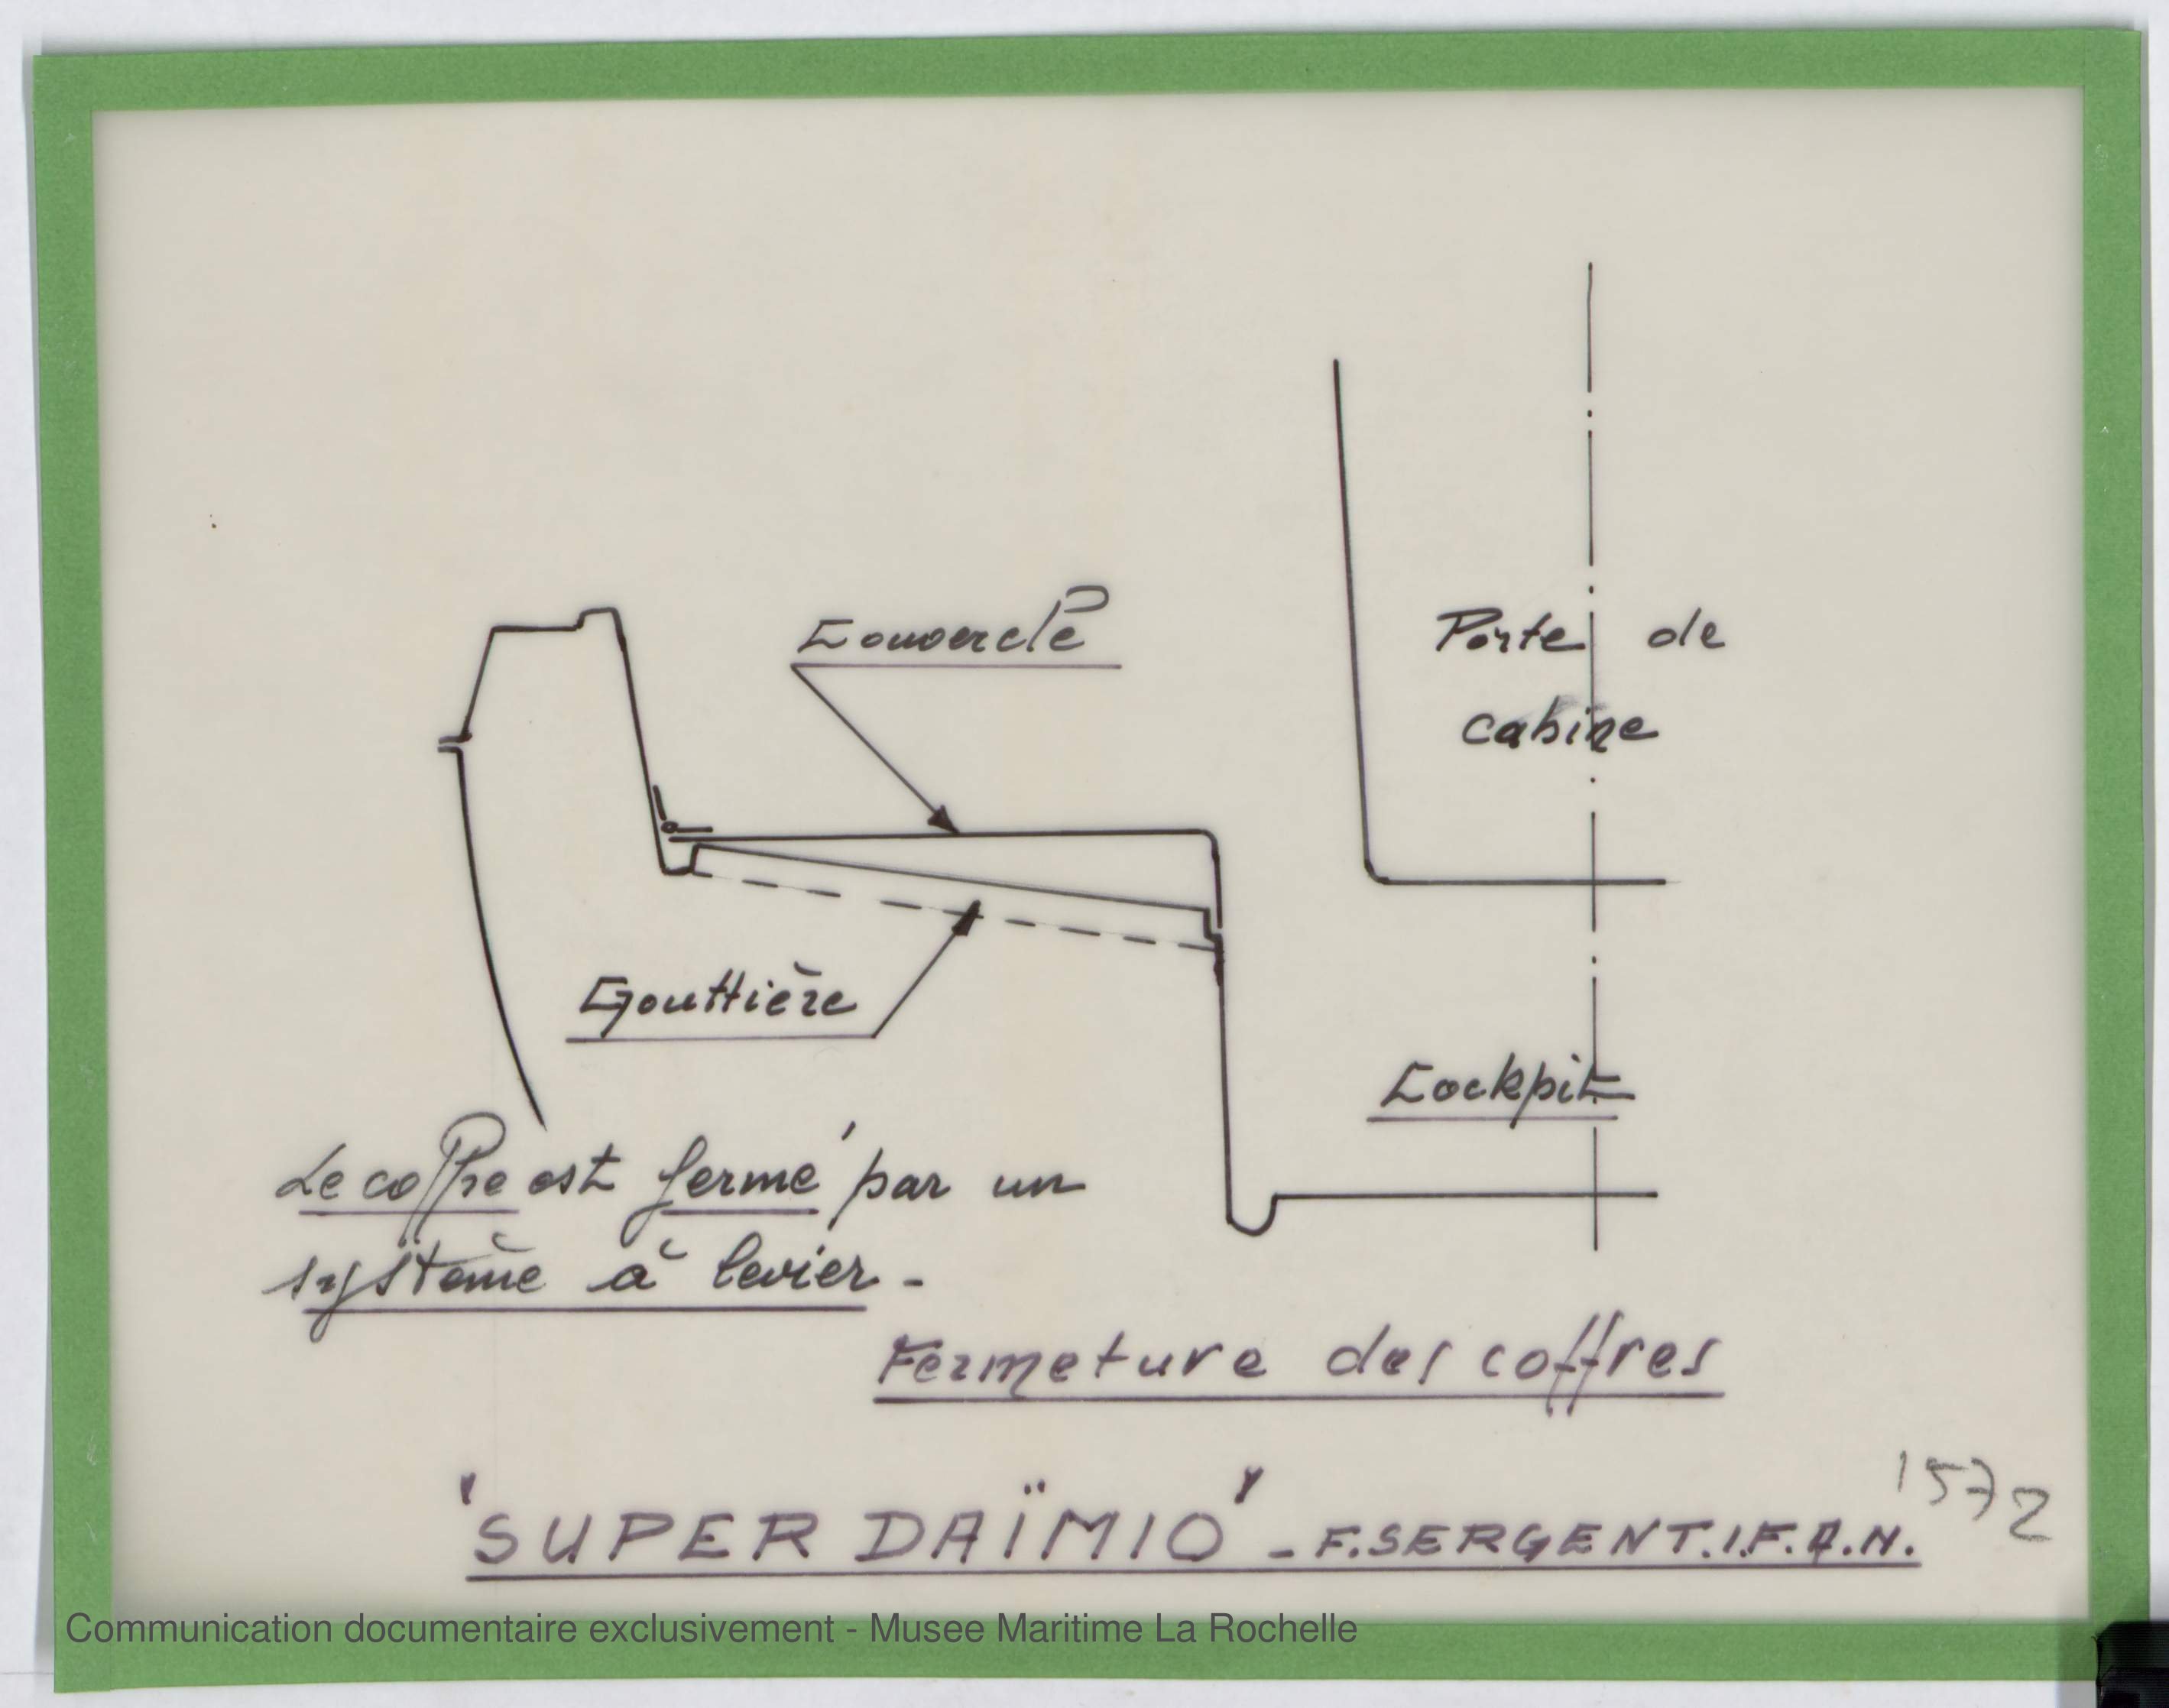 Couvercle
Porte de
cabine
Gouttière
Cockpit
Le coffre est fermé par un
système à levier -
Fermeture des coffres
1572
"SUPER DAÏMIO" - F. SERGENT. I.F.A.N.
Communication documentaire exclusivement - Musee Maritime La Rochelle